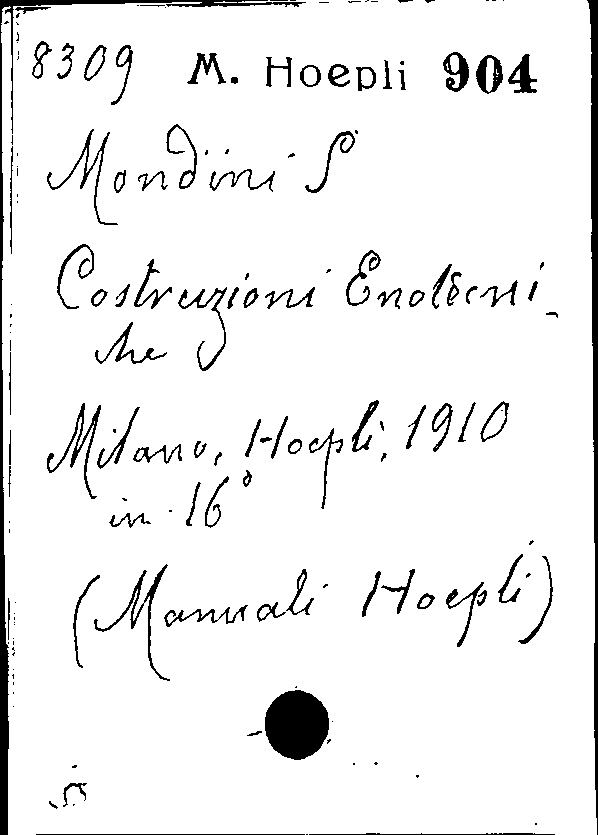 8309 M. Hoepli 904
Mondini S
Costruzioni Enotècni-
che
Milano, Hoepli, 1910
in 16°
(Manuali Hoepli)